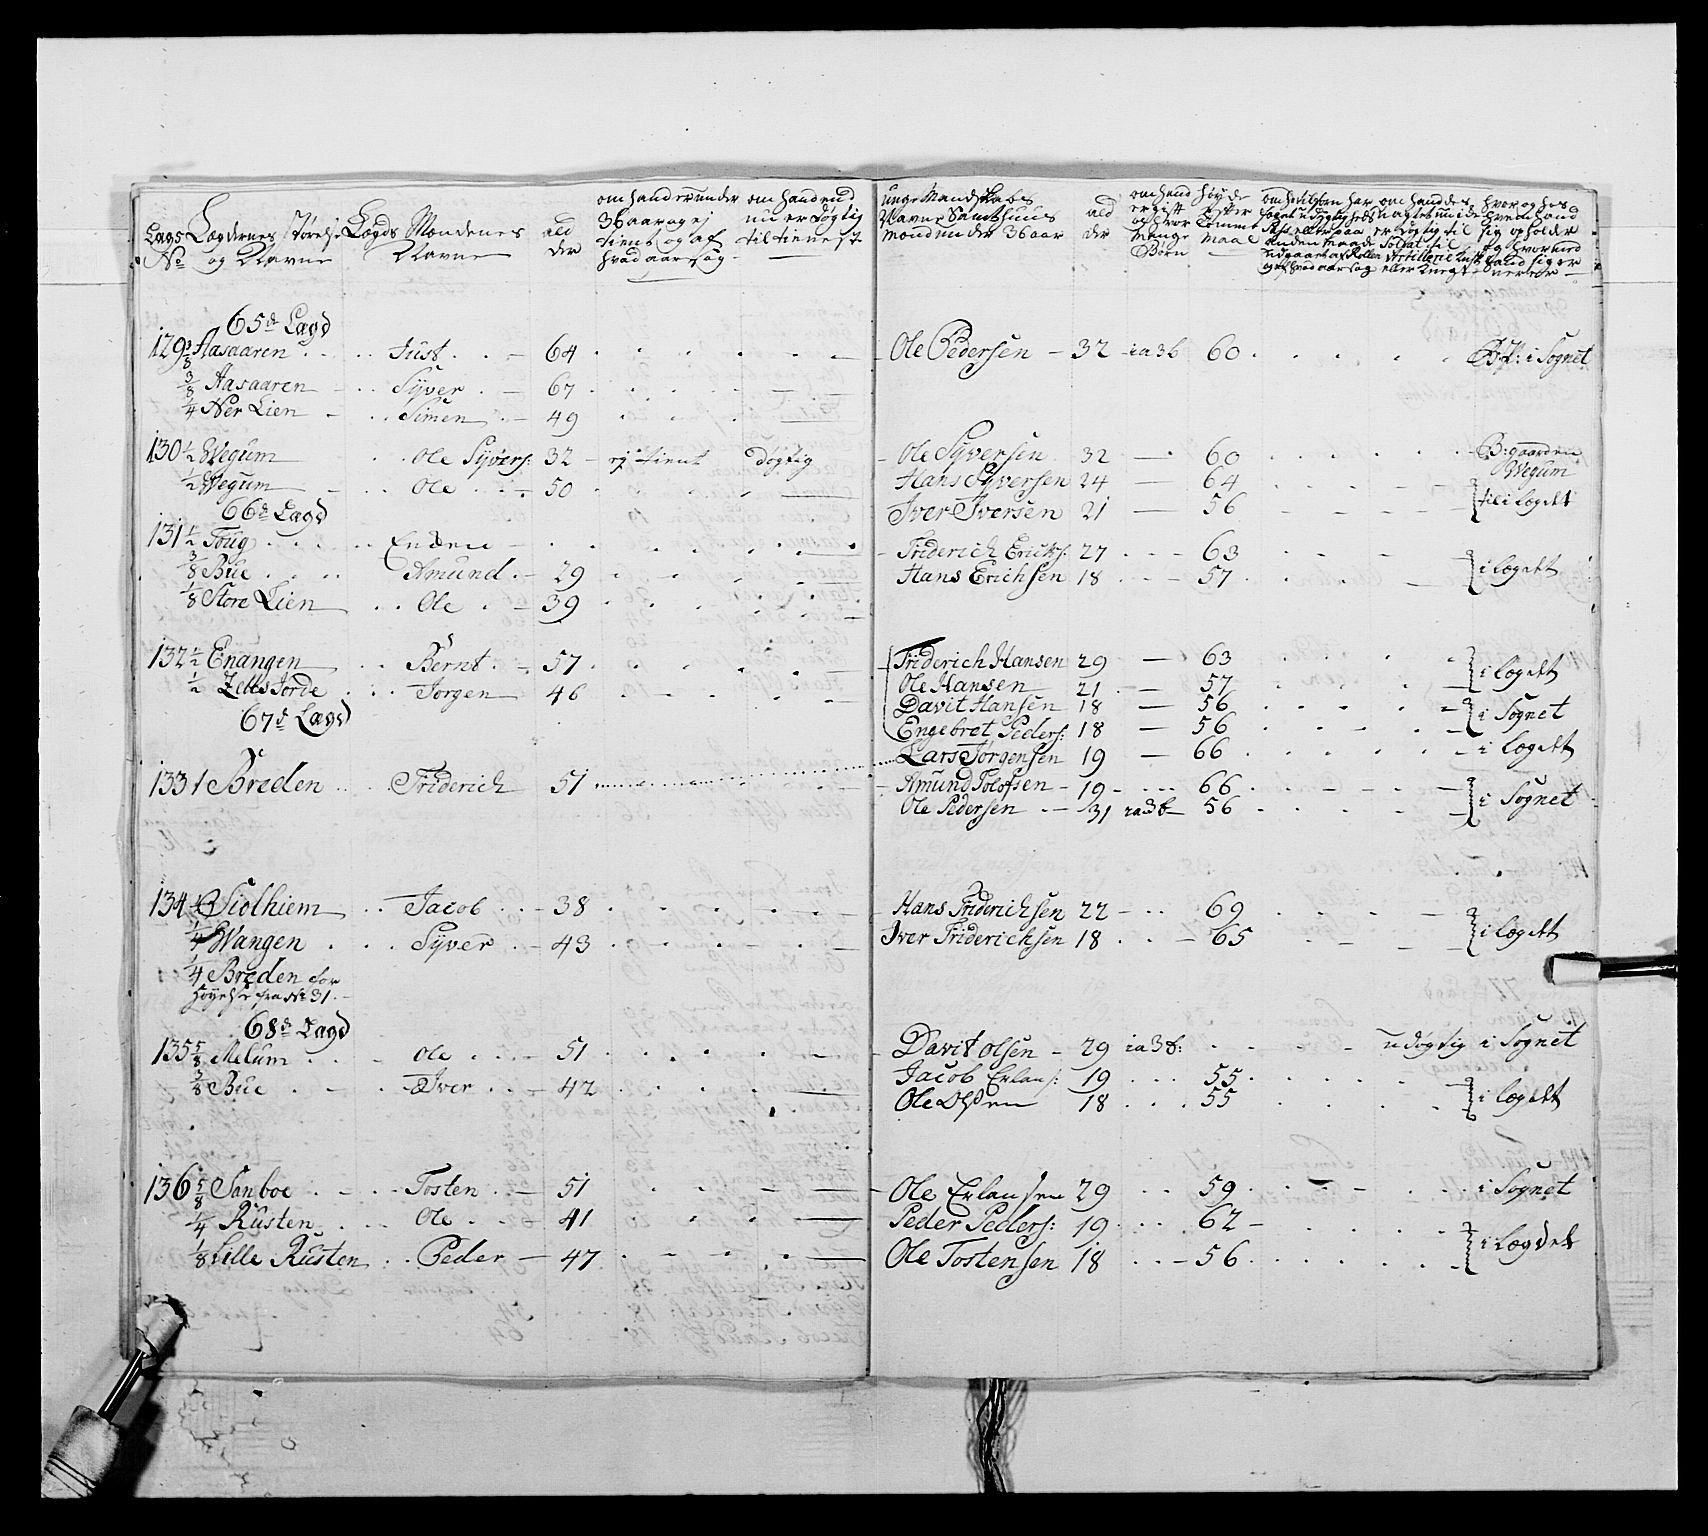 Lags No Lægdernes størelse og Navne Lægds Mændenes Navne ald der om hand er under 36 aar og ej tient og af hvad aarsag om hand end nu er døgtig til tieneste
unge Mandskabs Navne Samt huus mænd under 36 aar ald der om hend er gift og hvor mange Børn høyde efter Maal
65de Lægd
129 3/8 Aasaaren Just 64 Ole Pedersen 32 ia 3 b 60 B.Pl: i Sognet
3/8 Aasaaren Syver 67
1/4 Ner Lien Simen 49
130 1/2 Wegum Ole Syvers: 32 ej tient døgtig Ole Syversen 32 60 B: gaarden Wegum
1/2 Wegum Ole 50 Hans Syversen 24 64
66de Lægd Iver Iversen 21 56 til i Lægdet
131 1/2 Toug Enken Friderich Ericks: 27 63
3/8 Bue Amund 29 Hans Erichsen 18 57 i Lægdet
1/8 Store Lien Ole 39
132 1/2 Enangen Bernt 57 Friderich Hansen 29 63
1/2 Zelts Jorde Jørgen 46 Ole Hansen 21 57 i Lægdet
67de Lægd Davit Hansen 18 56
Engebret Peders: 18 56 i Sognet
Lars Jørgensen 19 66 i Lægdet
133 1 Breden Friderich 51 Amund Tolofsen 19 66
Ole Pedersen 31 ia 3 b 56 i Sognet
134 1/2 Siolhiem Jacob 38 Hans Friderichsen 22 69
1/4 Wangen Syver 43 Iver Friderichsen 18 65 i Lægdet
1/4 Breden for
høyelse fra No 31
68de Lægd
135 5/8 Melum Ole 51 Davit Olsen 29 ia 3 b: udøgtig i Sognet
3/8 Bue Iver 42 Jacob Erlans: 19 55
Ole Olsen 18 55 i Lægdet
136 5/8 Sanboe Tosten 51 Ole Erlansen 29 59 i Sognet
1/4 Rusten Ole 41 Peder Peders: 19 62
1/8 Lille Rusten Peder 47 Ole Tostensen 18 56 i Lægdet